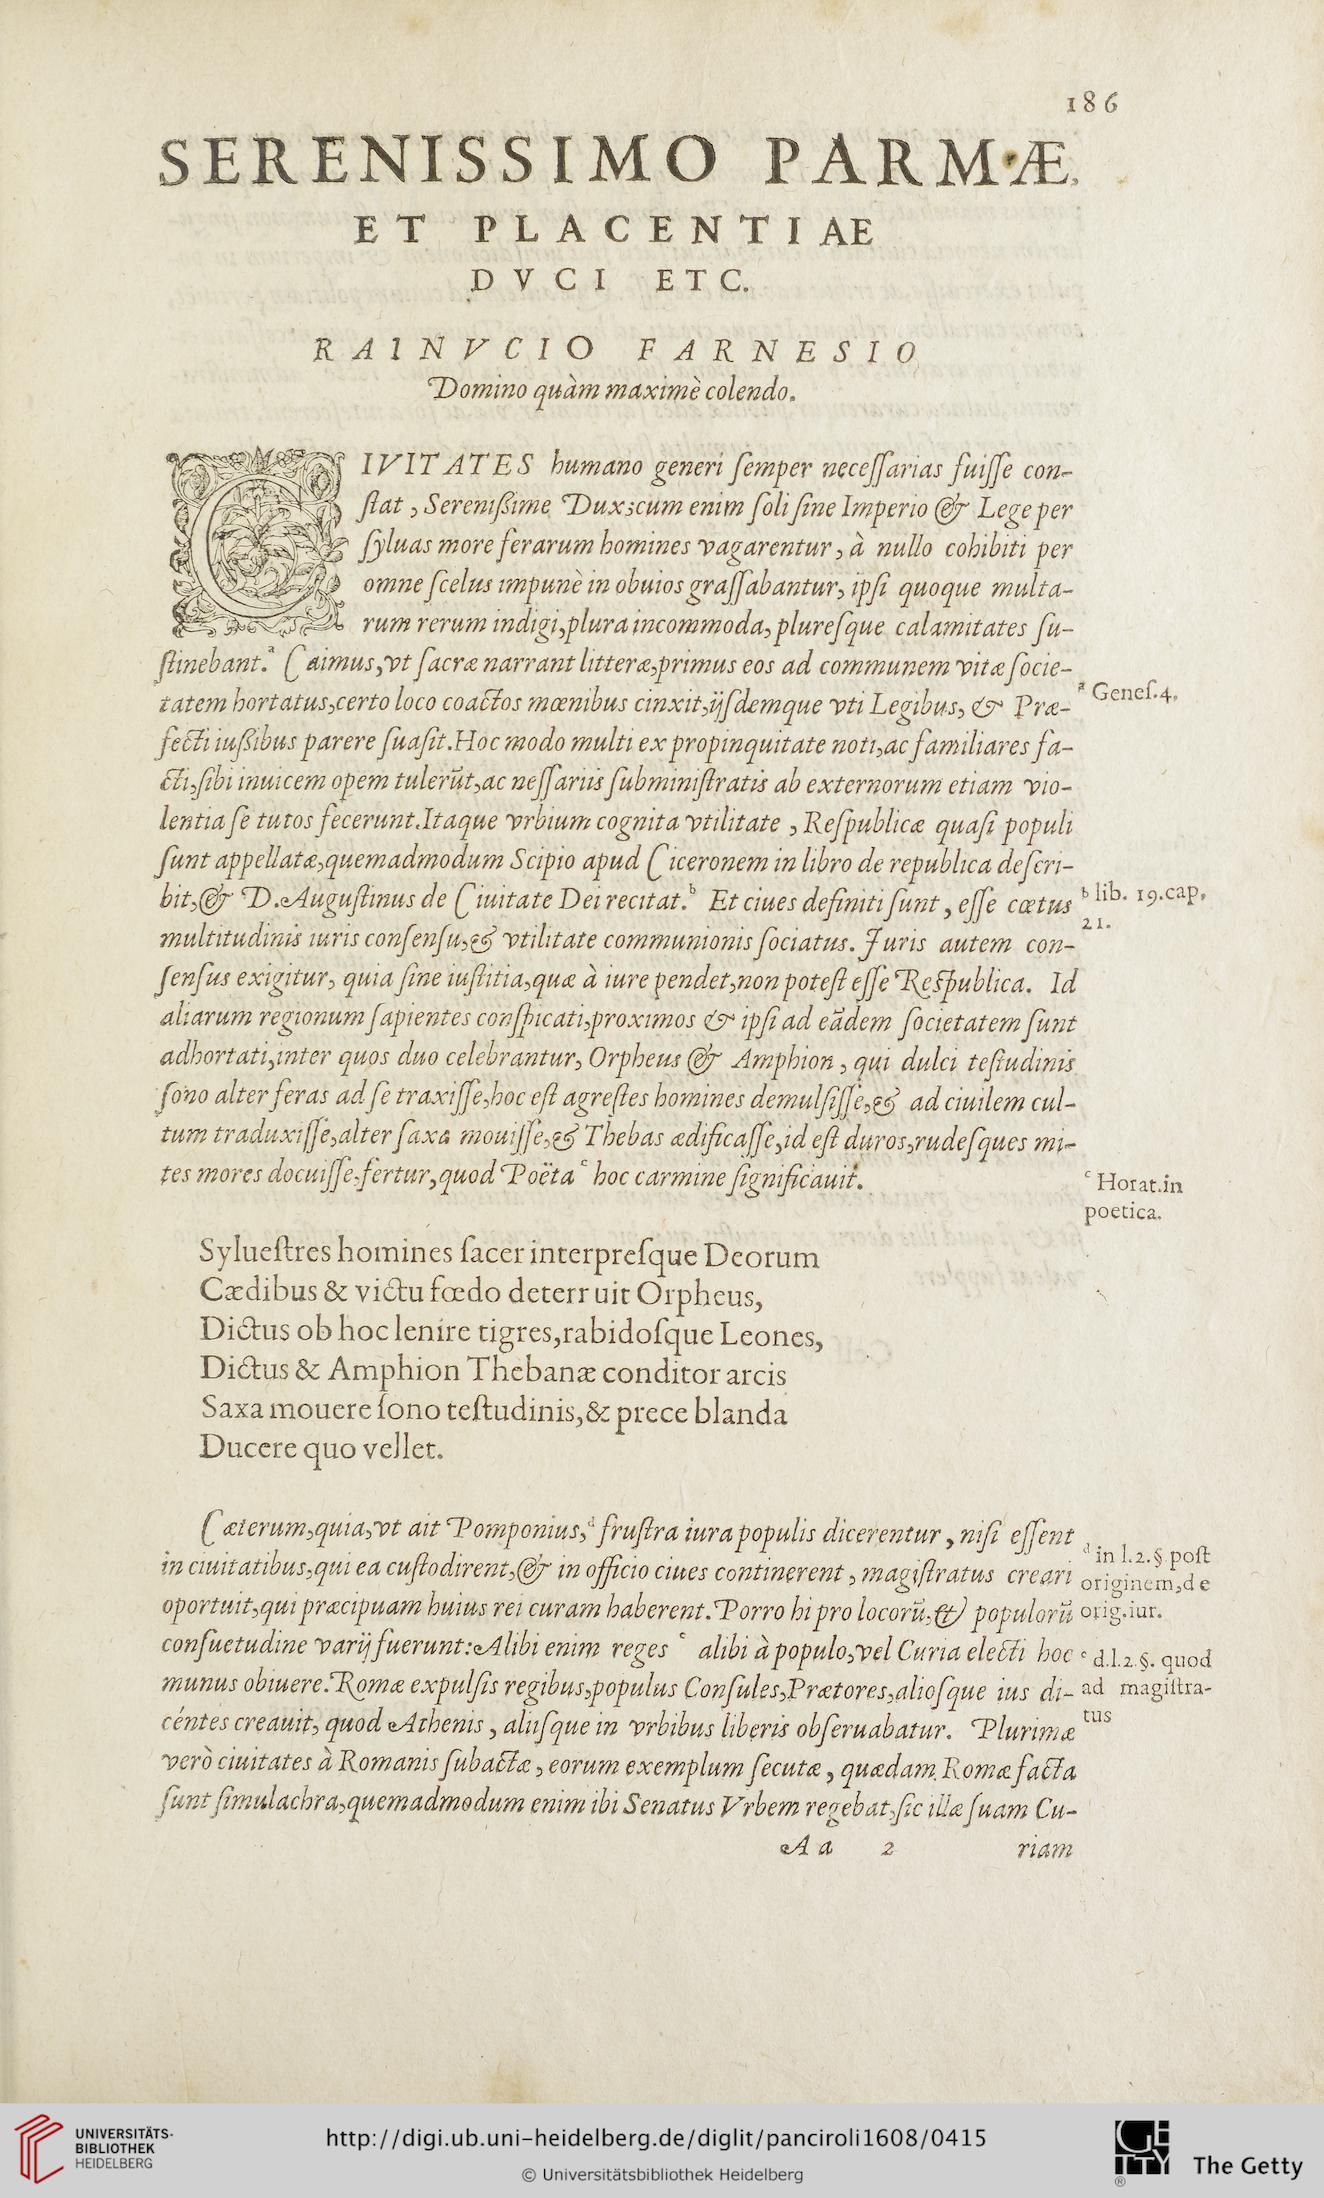 186
SERENISSIMO PARMÆ,
ET PLACENTIAE
DVCI ETC.
RAINVCIO FARNESIO
Domino quàm maximè colendo.
CIVITATES humano generi ſemper neceſſarias fuiſſe con-
ſtat, Sereniſsime Dux; cum enim ſoli ſine Imperio & Lege per
ſyluas more ferarum homines vagarentur, à nullo cohibiti per
omne ſcelus impunè in obuios graſſabantur, ipſi quoque multa-
rum rerum indigi, plura incommoda, plureſque calamitates ſu-
ſtinebant.ª Caimus, vt ſacræ narrant litteræ, primus eos ad communem vitæ ſocie-
tatem hortatus, certo loco coactos mœnibus cinxit, ijſdemque vti Legibus, & Præ-
fecti iuſsibus parere ſuaſit. Hoc modo multi ex propinquitate noti, ac familiares fa-
cti, ſibi inuicem opem tulerūt, ac neſſariis ſubminiſtratis ab externorum etiam vio-
lentia ſe tutos fecerunt. Itaque vrbium cognita vtilitate, Reſpublicæ quaſi populi
ſunt appellatæ, quemadmodum Scipio apud Ciceronem in libro de republica deſcri-
bit, & D. Auguſtinus de Ciuitate Dei recitat.ᵇ Et ciues definiti ſunt, eſſe cœtus
multitudinis iuris conſenſu, & vtilitate communionis ſociatus. Iuris autem con-
ſenſus exigitur, quia ſine iuſtitia, quæ à iure pendet, non poteſt eſſe Reſpublica. Id
aliarum regionum ſapientes conſpicati, proximos & ipſi ad eādem ſocietatem ſunt
adhortati, inter quos duo celebrantur, Orpheus & Amphion, qui dulci teſtudinis
ſono alter feras ad ſe traxiſſe, hoc eſt agreſtes homines demulſiſſe, & ad ciuilem cul-
tum traduxiſſe, alter ſaxa mouiſſe, & Thebas ædificaſſe, id eſt duros, rudeſques mi-
tes mores docuiſſe, fertur, quod Poëta ᶜ hoc carmine ſignificauit.
ª Geneſ. 4.
ᵇ lib. 19. cap.
21.
ᶜ Horat. in
poetica.
Sylueſtres homines ſacer interpreſque Deorum
Cædibus & victu fœdo deterruit Orpheus,
Dictus ob hoc lenire tigres, rabidoſque Leones,
Dictus & Amphion Thebanæ conditor arcis
Saxa mouere ſono teſtudinis, & prece blanda
Ducere quo vellet.
Cæterum, quia, vt ait Pomponius,ᵈ fruſtra iura populis dicerentur, niſi eſſent
in ciuitatibus, qui ea cuſtodirent, & in officio ciues continerent, magiſtratus creari
oportuit, qui præcipuam huius rei curam haberent. Porro hi pro locorū, & populorū
conſuetudine varij fuerunt: Alibi enim reges ᵉ alibi à populo, vel Curia electi hoc
munus obiuere. Romæ expulſis regibus, populus Conſules, Prætores, alioſque ius di-
centes creauit, quod Athenis, aliiſque in vrbibus liberis obſeruabatur. Plurimæ
verò ciuitates à Romanis ſubactæ, eorum exemplum ſecutæ, quædam Romæ facta
ſunt ſimulachra, quemadmodum enim ibi Senatus Vrbem regebat, ſic illæ ſuam Cu-
ᵈ in l. 2. §. poſt
originem, de
orig. iur.
ᵉ d. l. 2. §. quod
ad magiſtra-
tus
Aa 2 riam
UNIVERSITÄTS-
BIBLIOTHEK
HEIDELBERG
http://digi.ub.uni-heidelberg.de/diglit/panciroli1608/0415
© Universitätsbibliothek Heidelberg
GETTY
®
The Getty